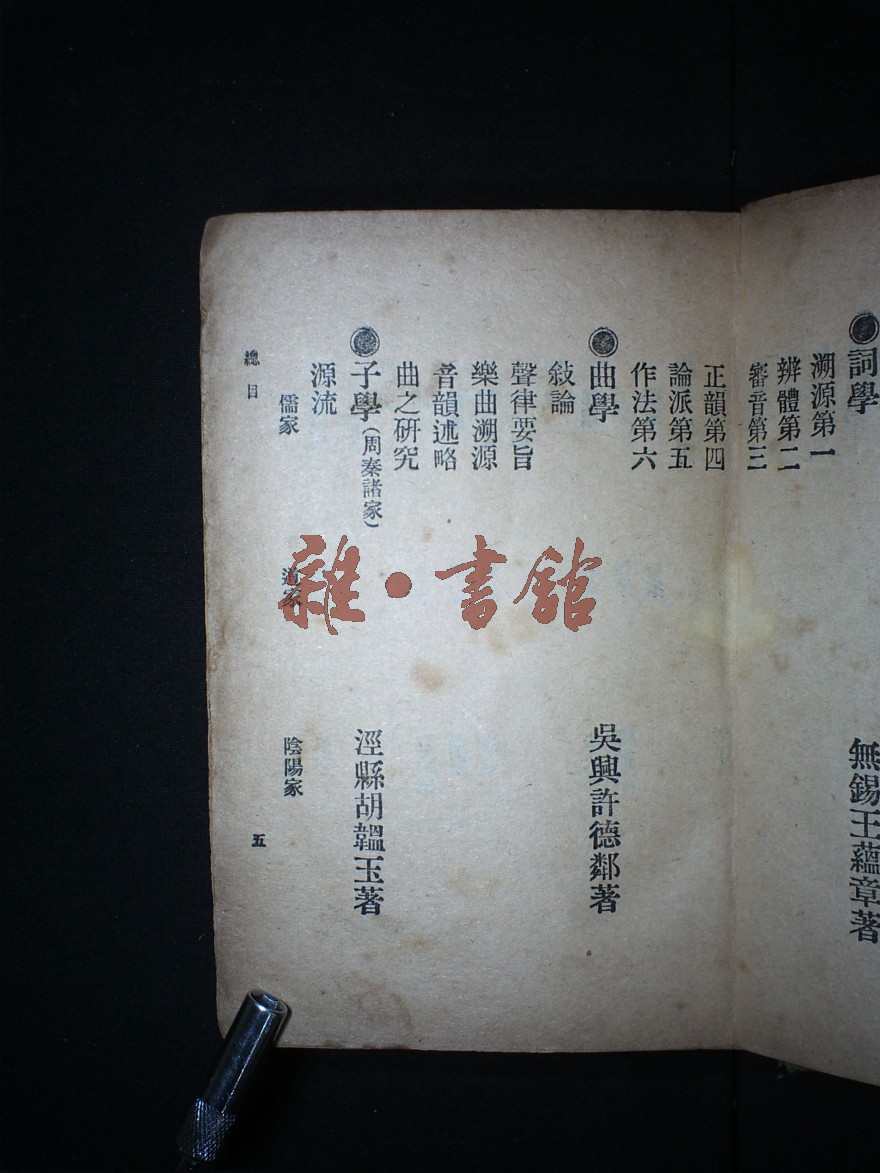 詞學
無錫王蘊章著
溯源第一
辨體第二
審音第三
正韻第四
論派第五
作法第六
曲學
吳興許德鄰著
敍論
聲律要旨
樂曲溯源
音韻述略
曲之研究
子學(周秦諸家)
涇縣胡韞玉著
源流
儒家
道家
陰陽家
總目
五
雜·書館